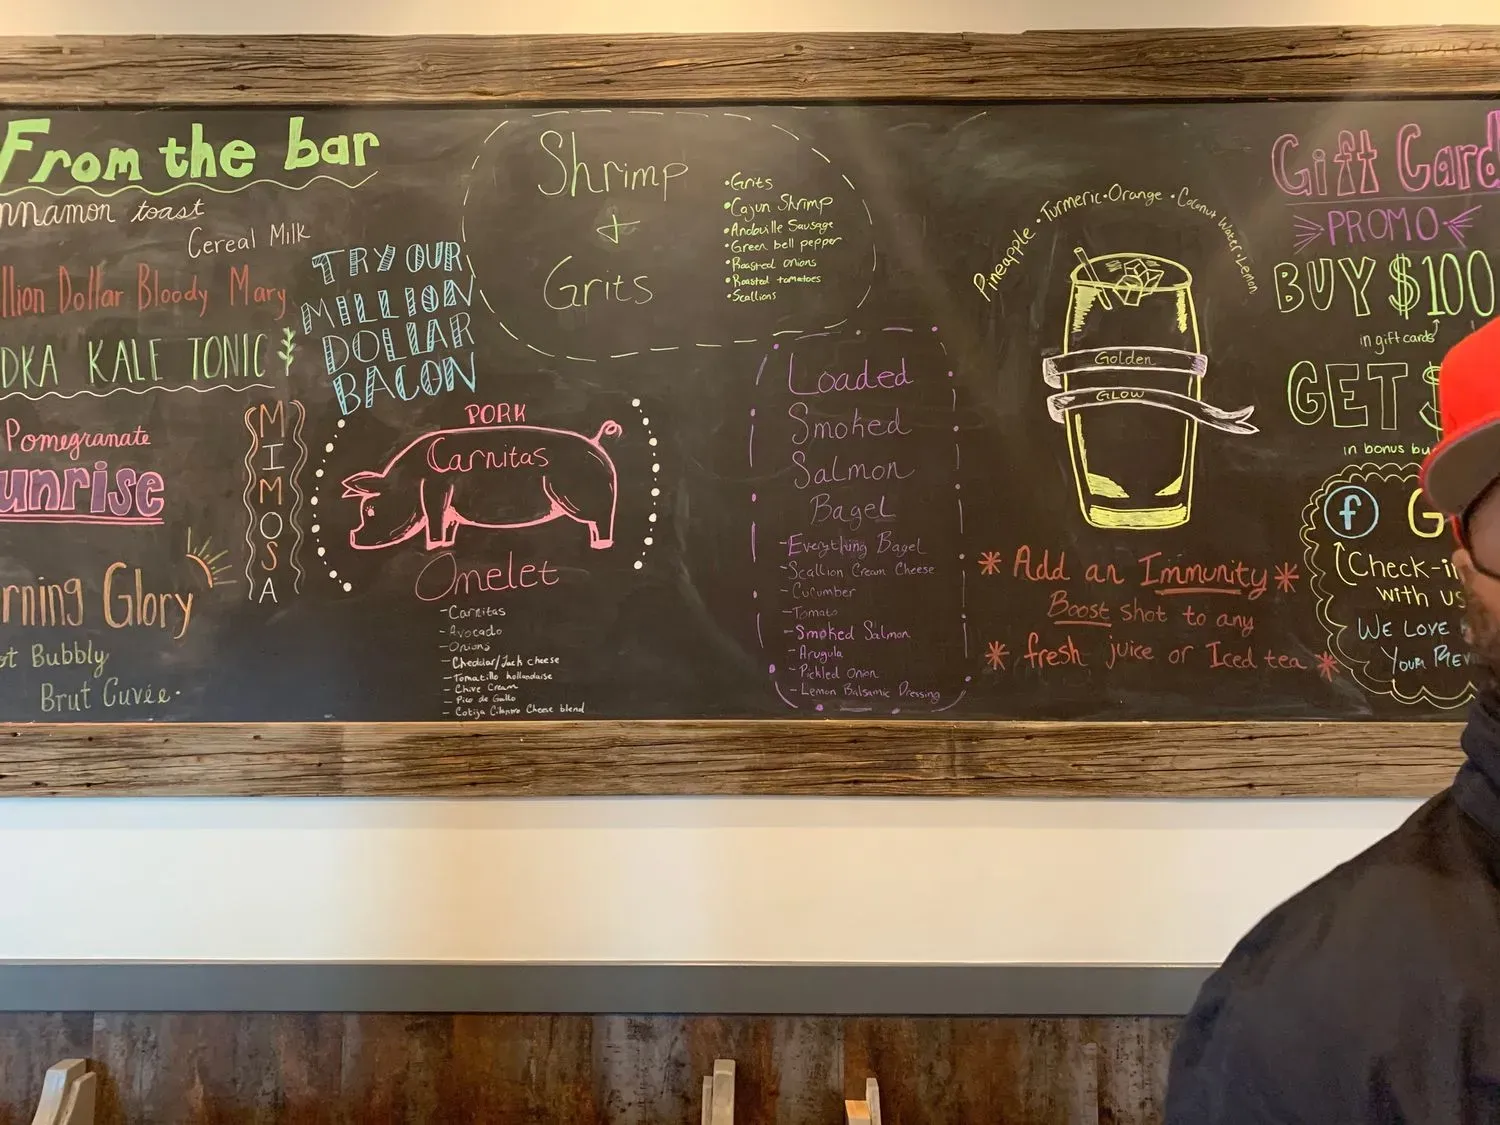 From the bar
nnamon toast
Cereal Milk
llion Dollar Bloody Mary
DKA KALE TONIC
Pomegranate
unrise
MIMOSA
rning Glory
t Bubbly
Brut Cuvée.
TRY OUR
MILLION
DOLLAR
BACON
PORK
Carnitas
Omelet
-Carnitas
-Avocado
-Onions
-Cheddar/Jack cheese
-Tomatillo hollandaise
-Chive Cream
-Pico de Gallo
-Cotija Cilantro Cheese blend
Shrimp
+
Grits
•Grits
•Cajun Shrimp
•Andouille Sausage
•Green bell pepper
•Roasted onions
•Roasted tomatoes
•Scallions
Loaded
Smoked
Salmon
Bagel
-Everything Bagel
-Scallion Cream Cheese
-Cucumber
-Tomato
-Smoked Salmon
-Arugula
-Pickled Onion
-Lemon Balsamic Dressing
Pineapple • Turmeric • Orange • Coconut Water • Lemon
Golden
Glow
* Add an Immunity *
Boost shot to any
* fresh juice or Iced tea *
Gift Card
PROMO
BUY $100
in gift cards
GET $
in bonus bu
f G
Check-i
with us
WE LOVE
YOUR REV